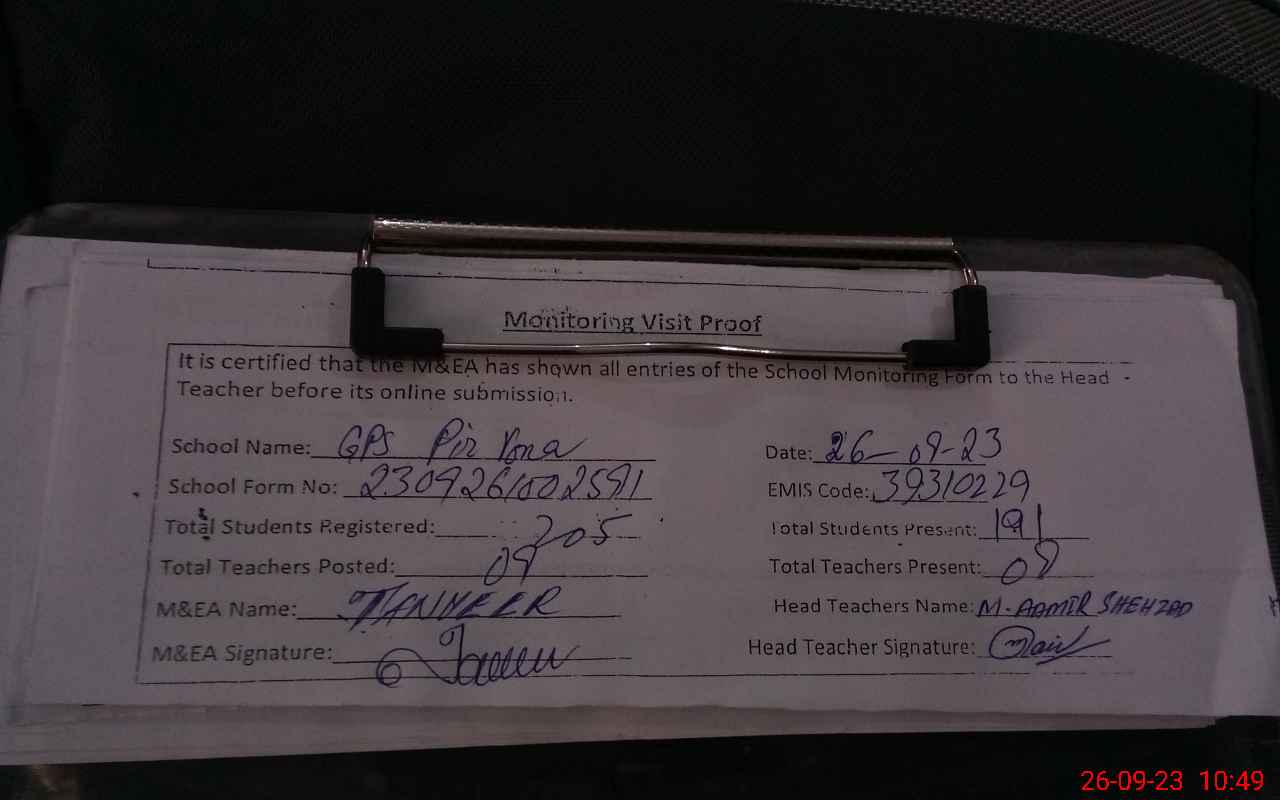 Monitoring Visit Proof
It is certified that the M&EA has shown all entries of the School Monitoring Form to the Head
Teacher before its online submission.
School Name: GPS Pir Date: 26-09-23
School Form No: EMIS Code: 39310229
Total Students Registered: 205 Total Students Present: 191
Total Teachers Posted: 09 Total Teachers Present: 09
M&EA Name: Head Teachers Name: M. AAMIR SHEHZAD
M&EA Signature: Head Teacher Signature:
26-09-23 10:49